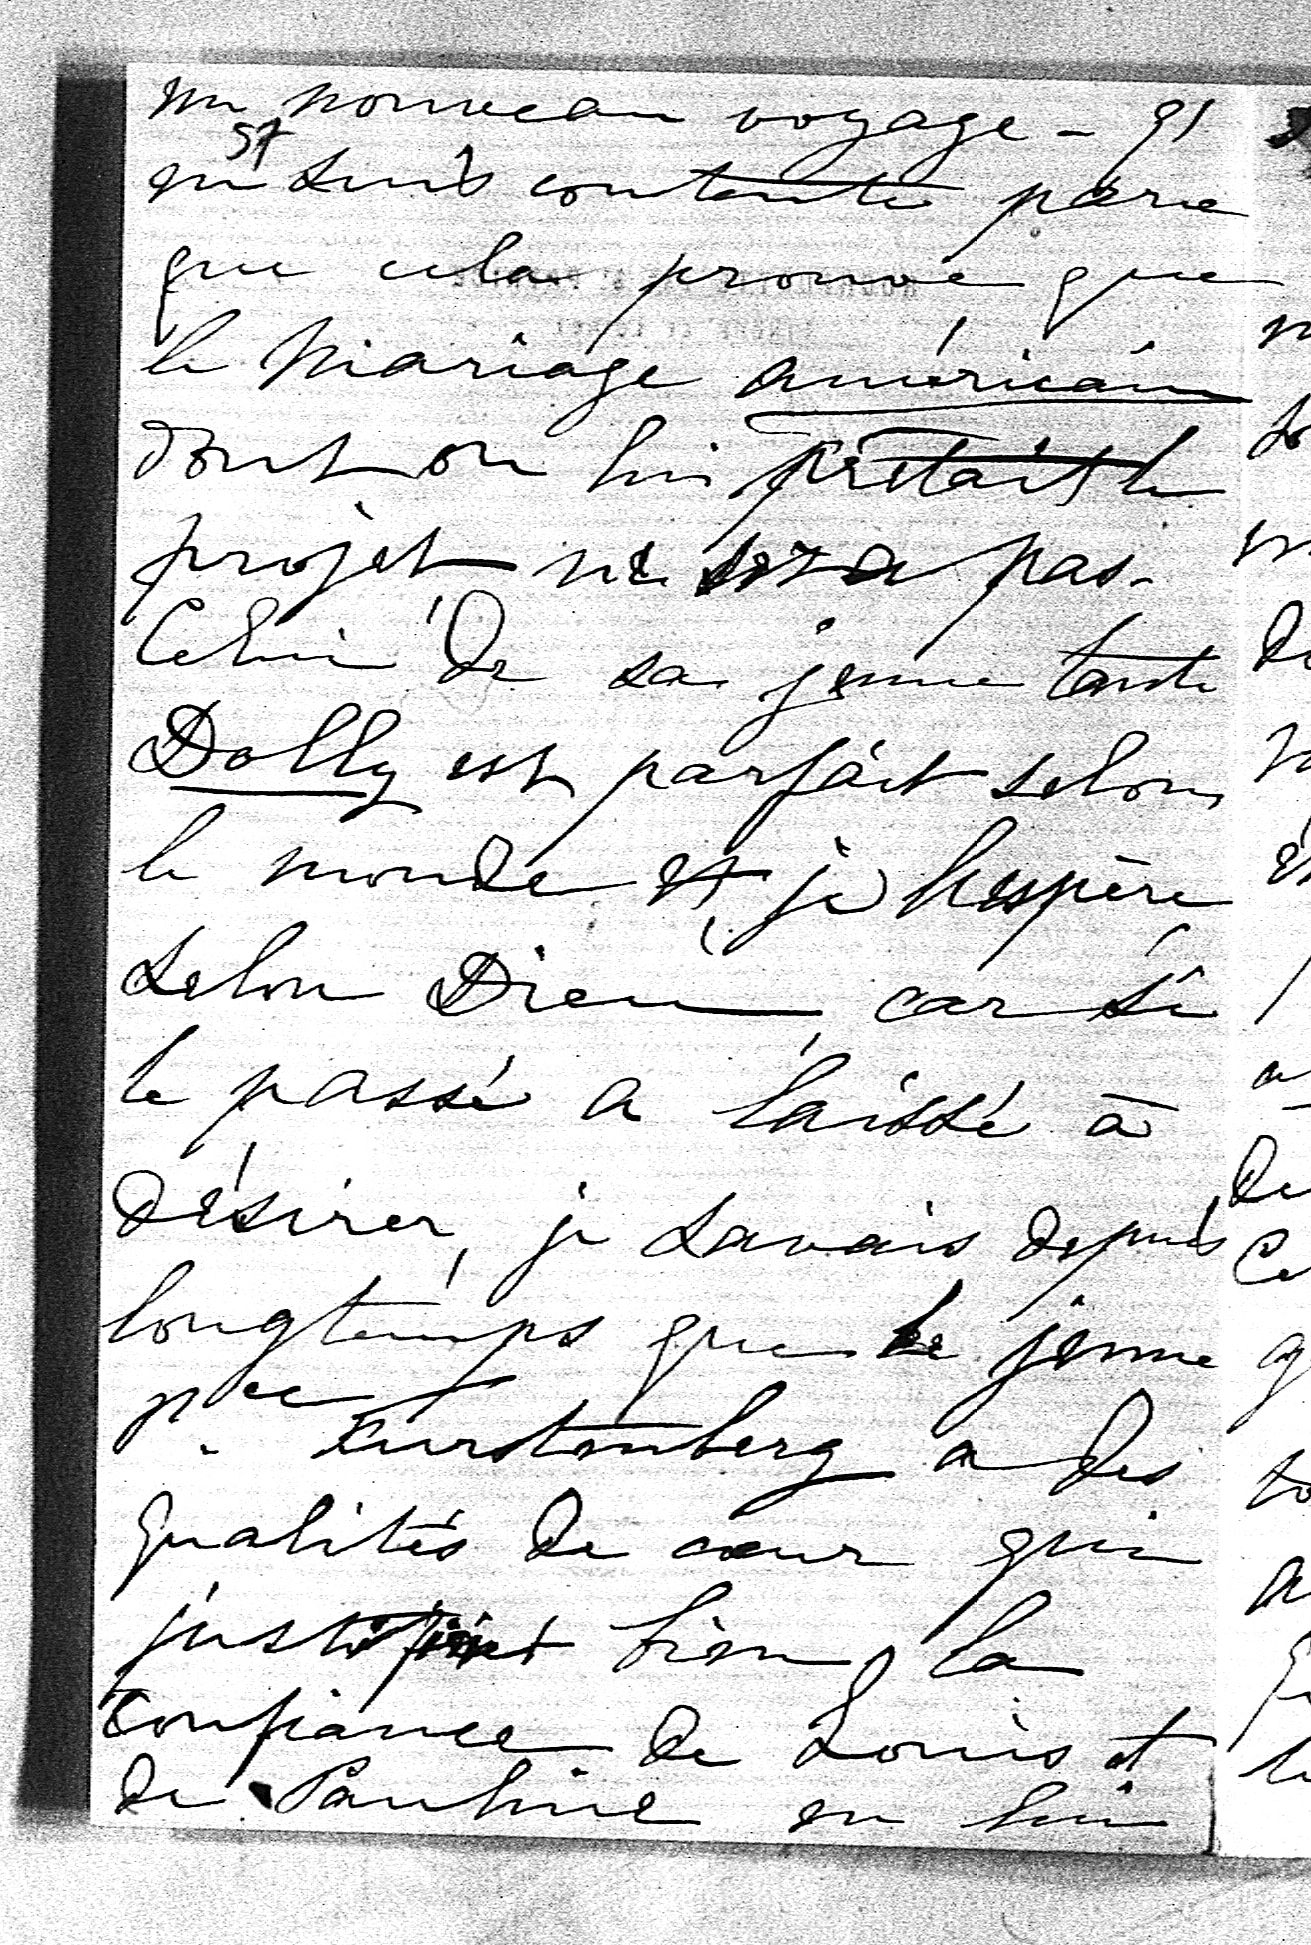 un nouveau voyage - J'
en suis contente parce
que cela prouve que
le mariage américain
dont on lui prêtait le
projet ne sera pas.
Celui de sa jeune tante
Dolly est parfait selon
le monde et je l'espère
selon Dieu, car si
le passé a laissé à
désirer, je savais depuis
longtemps que le jeune
pce Furstenberg a des
qualités de cœur qui
justifient bien la
confiance de Louis et
de Pauline en lui